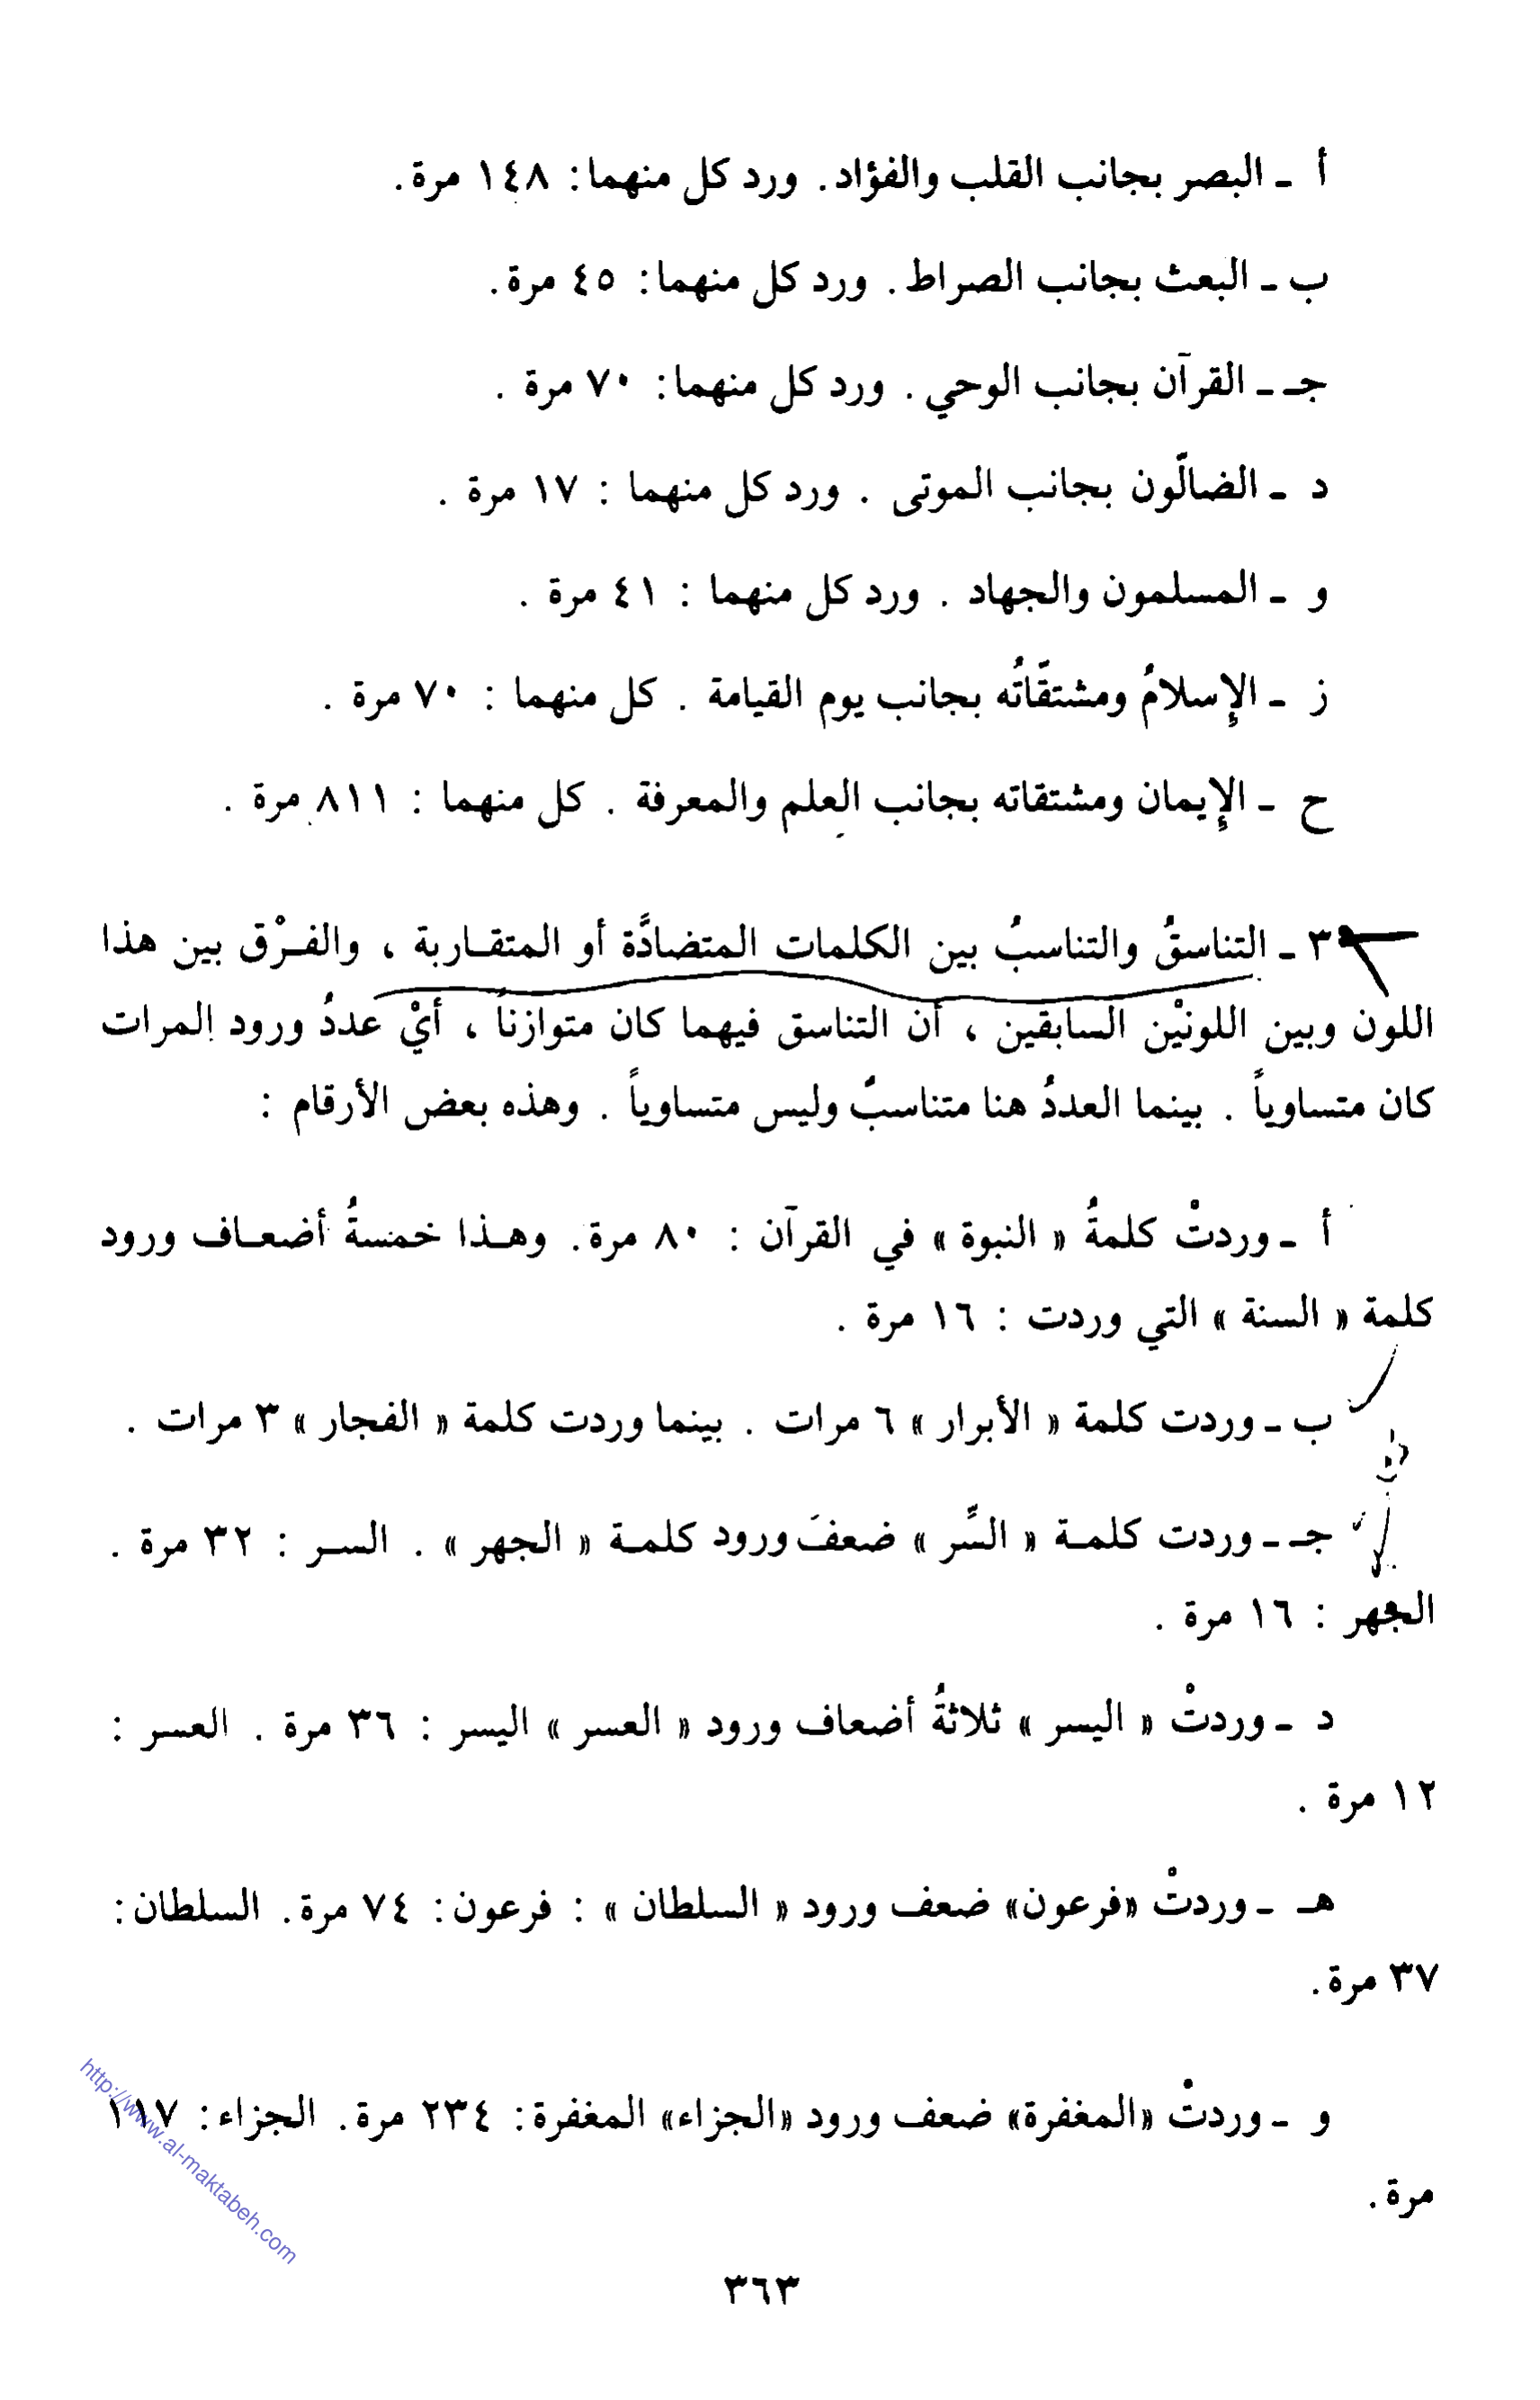 أ ـ البصر بجانب القلب والفؤاد. ورد كل منهما: ١٤٨ مرة.
ب ـ البعث بجانب الصراط. ورد كل منهما: ٤٥ مرة.
جـ ـ القرآن بجانب الوحي. ورد كل منهما: ٧٠ مرة.
د ـ الضالّون بجانب الموتى. ورد كل منهما: ١٧ مرة.
و ـ المسلمون والجهاد. ورد كل منهما: ٤١ مرة.
ز ـ الإسلامُ ومشتقّاتُه بجانب يوم القيامة. كل منهما: ٧٠ مرة.
ح ـ الإيمان ومشتقاته بجانب العلم والمعرفة. كل منهما: ٨١١ مرة.
٣ ـ التناسقُ والتناسبُ بين الكلمات المتضادَّة أو المتقـاربة، والفـرْق بين هذا
اللون وبين اللونيْن السابقين، أن التناسق فيهما كان متوازناً، أيْ عددُ ورود المرات
كان متساوياً. بينما العددُ هنا متناسبٌ وليس متساوياً. وهذه بعض الأرقام:
أ ـ وردتْ كلمةُ «النبوة» في القرآن: ٨٠ مرة. وهـذا خمسةُ أضعـاف ورود
كلمة «السنة» التي وردت: ١٦ مرة.
ب ـ وردت كلمة «الأبرار» ٦ مرات. بينما وردت كلمة «الفجار» ٣ مرات.
جـ ـ وردت كلمـة «السِّر» ضعفَ ورود كلمـة «الجهر». السـر: ٣٢ مرة.
الجهر: ١٦ مرة.
د ـ وردتْ «اليسر» ثلاثةُ أضعاف ورود «العسر» اليسر: ٣٦ مرة. العسر:
١٢ مرة.
هـ ـ وردتْ «فرعون» ضعف ورود «السلطان»: فرعون: ٧٤ مرة. السلطان:
٣٧ مرة.
و ـ وردتْ «المغفرة» ضعف ورود «الجزاء» المغفرة: ٢٣٤ مرة. الجزاء: ١١٧
مرة.
http://www.al-maktabeh.com
٣٦٣